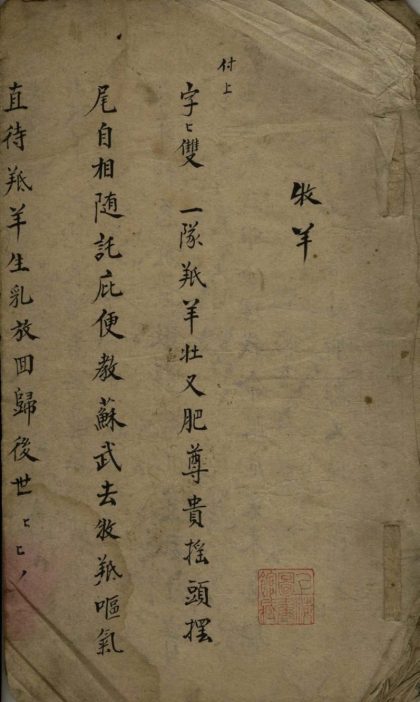 牧羊
付上
字〻雙 一隊羝羊壯又肥尊貴摇頭擺
尾自相随託庇便教蘇武去牧羝嘔氣
直待羝羊生乳放回歸後世〻〻